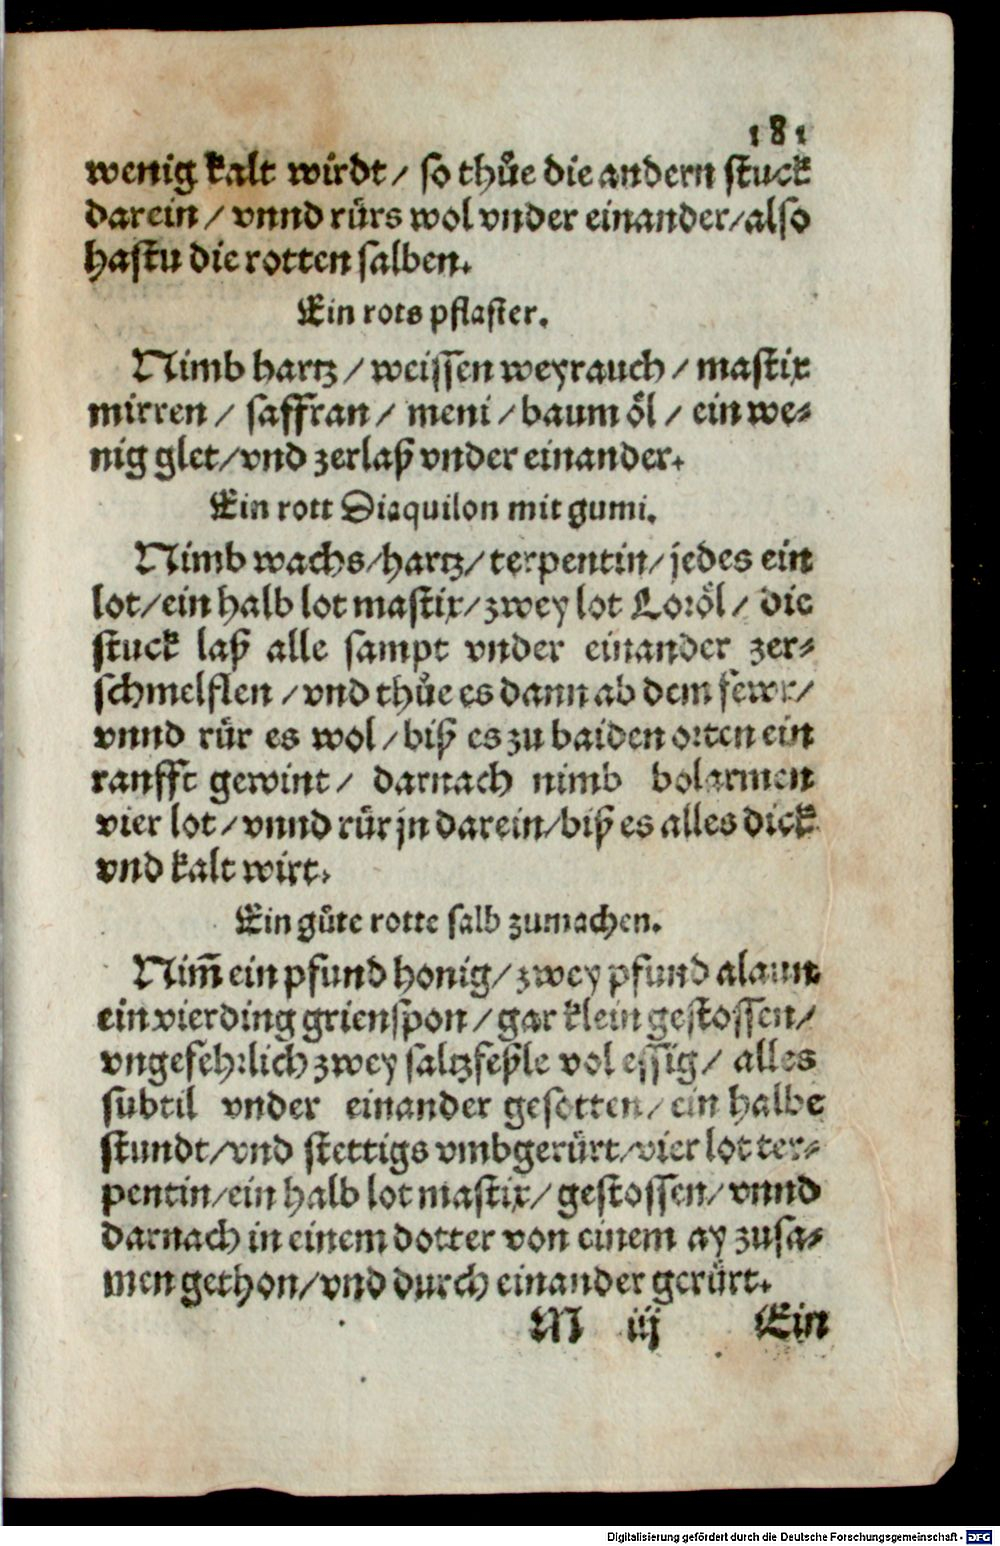 181
wenig kalt wirdt / so thuͤe die andern stuck
darein / vnnd ruͤrs wol vnder einander / also
hastu die rotten salben.
Ein rots pflaster.
Nimb hartz / weissen weyrauch / mastix
mirren / saffran / meni / baum oͤl / ein we⸗
nig glet / vnd zerlaß vnder einander.
Ein rott Diaquilon mit gumi.
Nimb wachs / hartz / terpentin / jedes ein
lot / ein halb lot mastix / zwey lot Loroͤl / die
stuck laß alle sampt vnder einander zer⸗
schmelflen / vnd thuͤe es dann ab dem fewr /
vnnd ruͤr es wol / biß es zu baiden orten ein
ranfft gewint / darnach nimb bolarmen
vier lot / vnnd ruͤr jn darein / biß es alles dick
vnd kalt wirt.
Ein guͤte rotte salb zumachen.
Nim̄ ein pfund honig / zwey pfund alaun
ein vierding grienspon / gar klein gestossen /
vngefehrlich zwey saltzfeßle vol essig / alles
subtil vnder einander gesotten / ein halbe
stundt / vnd stettigs vmbgeruͤrt / vier lot ter⸗
pentin / ein halb lot mastix / gestossen / vnnd
darnach in einem dotter von einem ay zusa⸗
men gethon / vnd durch einander geruͤrt.
M iij Ein
Digitalisierung gefördert durch die Deutsche Forschungsgemeinschaft - DFG